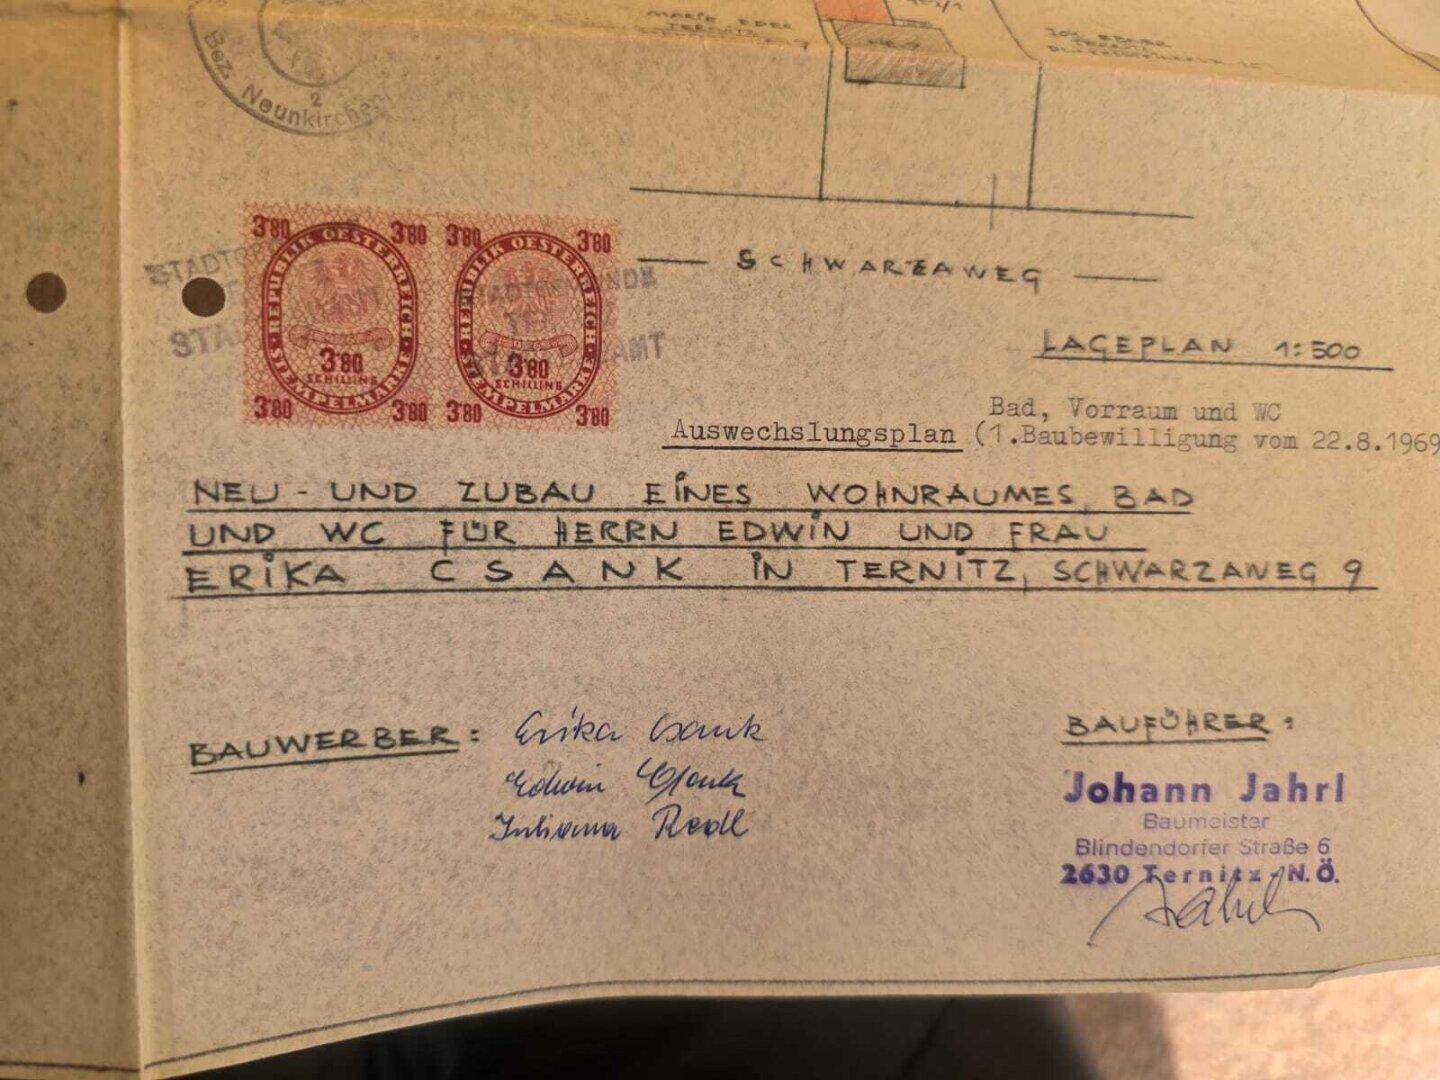 Bez. Neunkirchen
2
MARIE
TERNITZ
SCHWARZAWEG
LAGEPLAN 1:500
3'80 3'80 3'80 3'80
REPUBLIK OESTERREICH REPUBLIK OESTERREICH
3'80 3'80
SCHILLING SCHILLING
STEMPELMARKE STEMPELMARKE
3'80 3'80 3'80 3'80
Bad, Vorraum und WC
Auswechslungsplan (1.Baubewilligung vom 22.8.1969
NEU- UND ZUBAU EINES WOHNRAUMES, BAD
UND WC FÜR HERRN EDWIN UND FRAU
ERIKA CSANK IN TERNITZ, SCHWARZAWEG 9
BAUWERBER: Erika Csank
Edwin Csank
Juliana Redl
BAUFÜHRER:
Johann Jahrl
Baumeister
Blindendorfer Straße 6
2630 Ternitz-N.Ö.